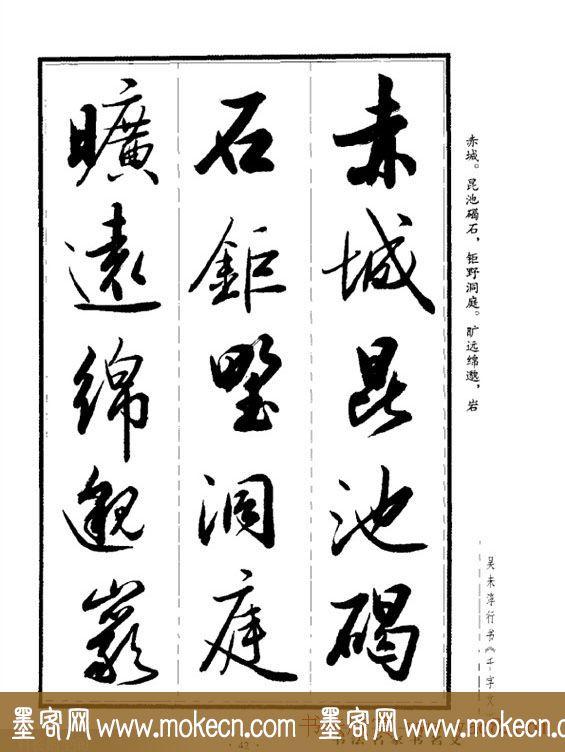 赤城昆池碣
石鉅墅洞庭
曠遠綿邈巖
赤城。昆池碣石，钜野洞庭。旷远绵邈，岩
吴未淳行书《千字文
墨客网 www.mokecn.com 墨客网 www.mokecn.com
42